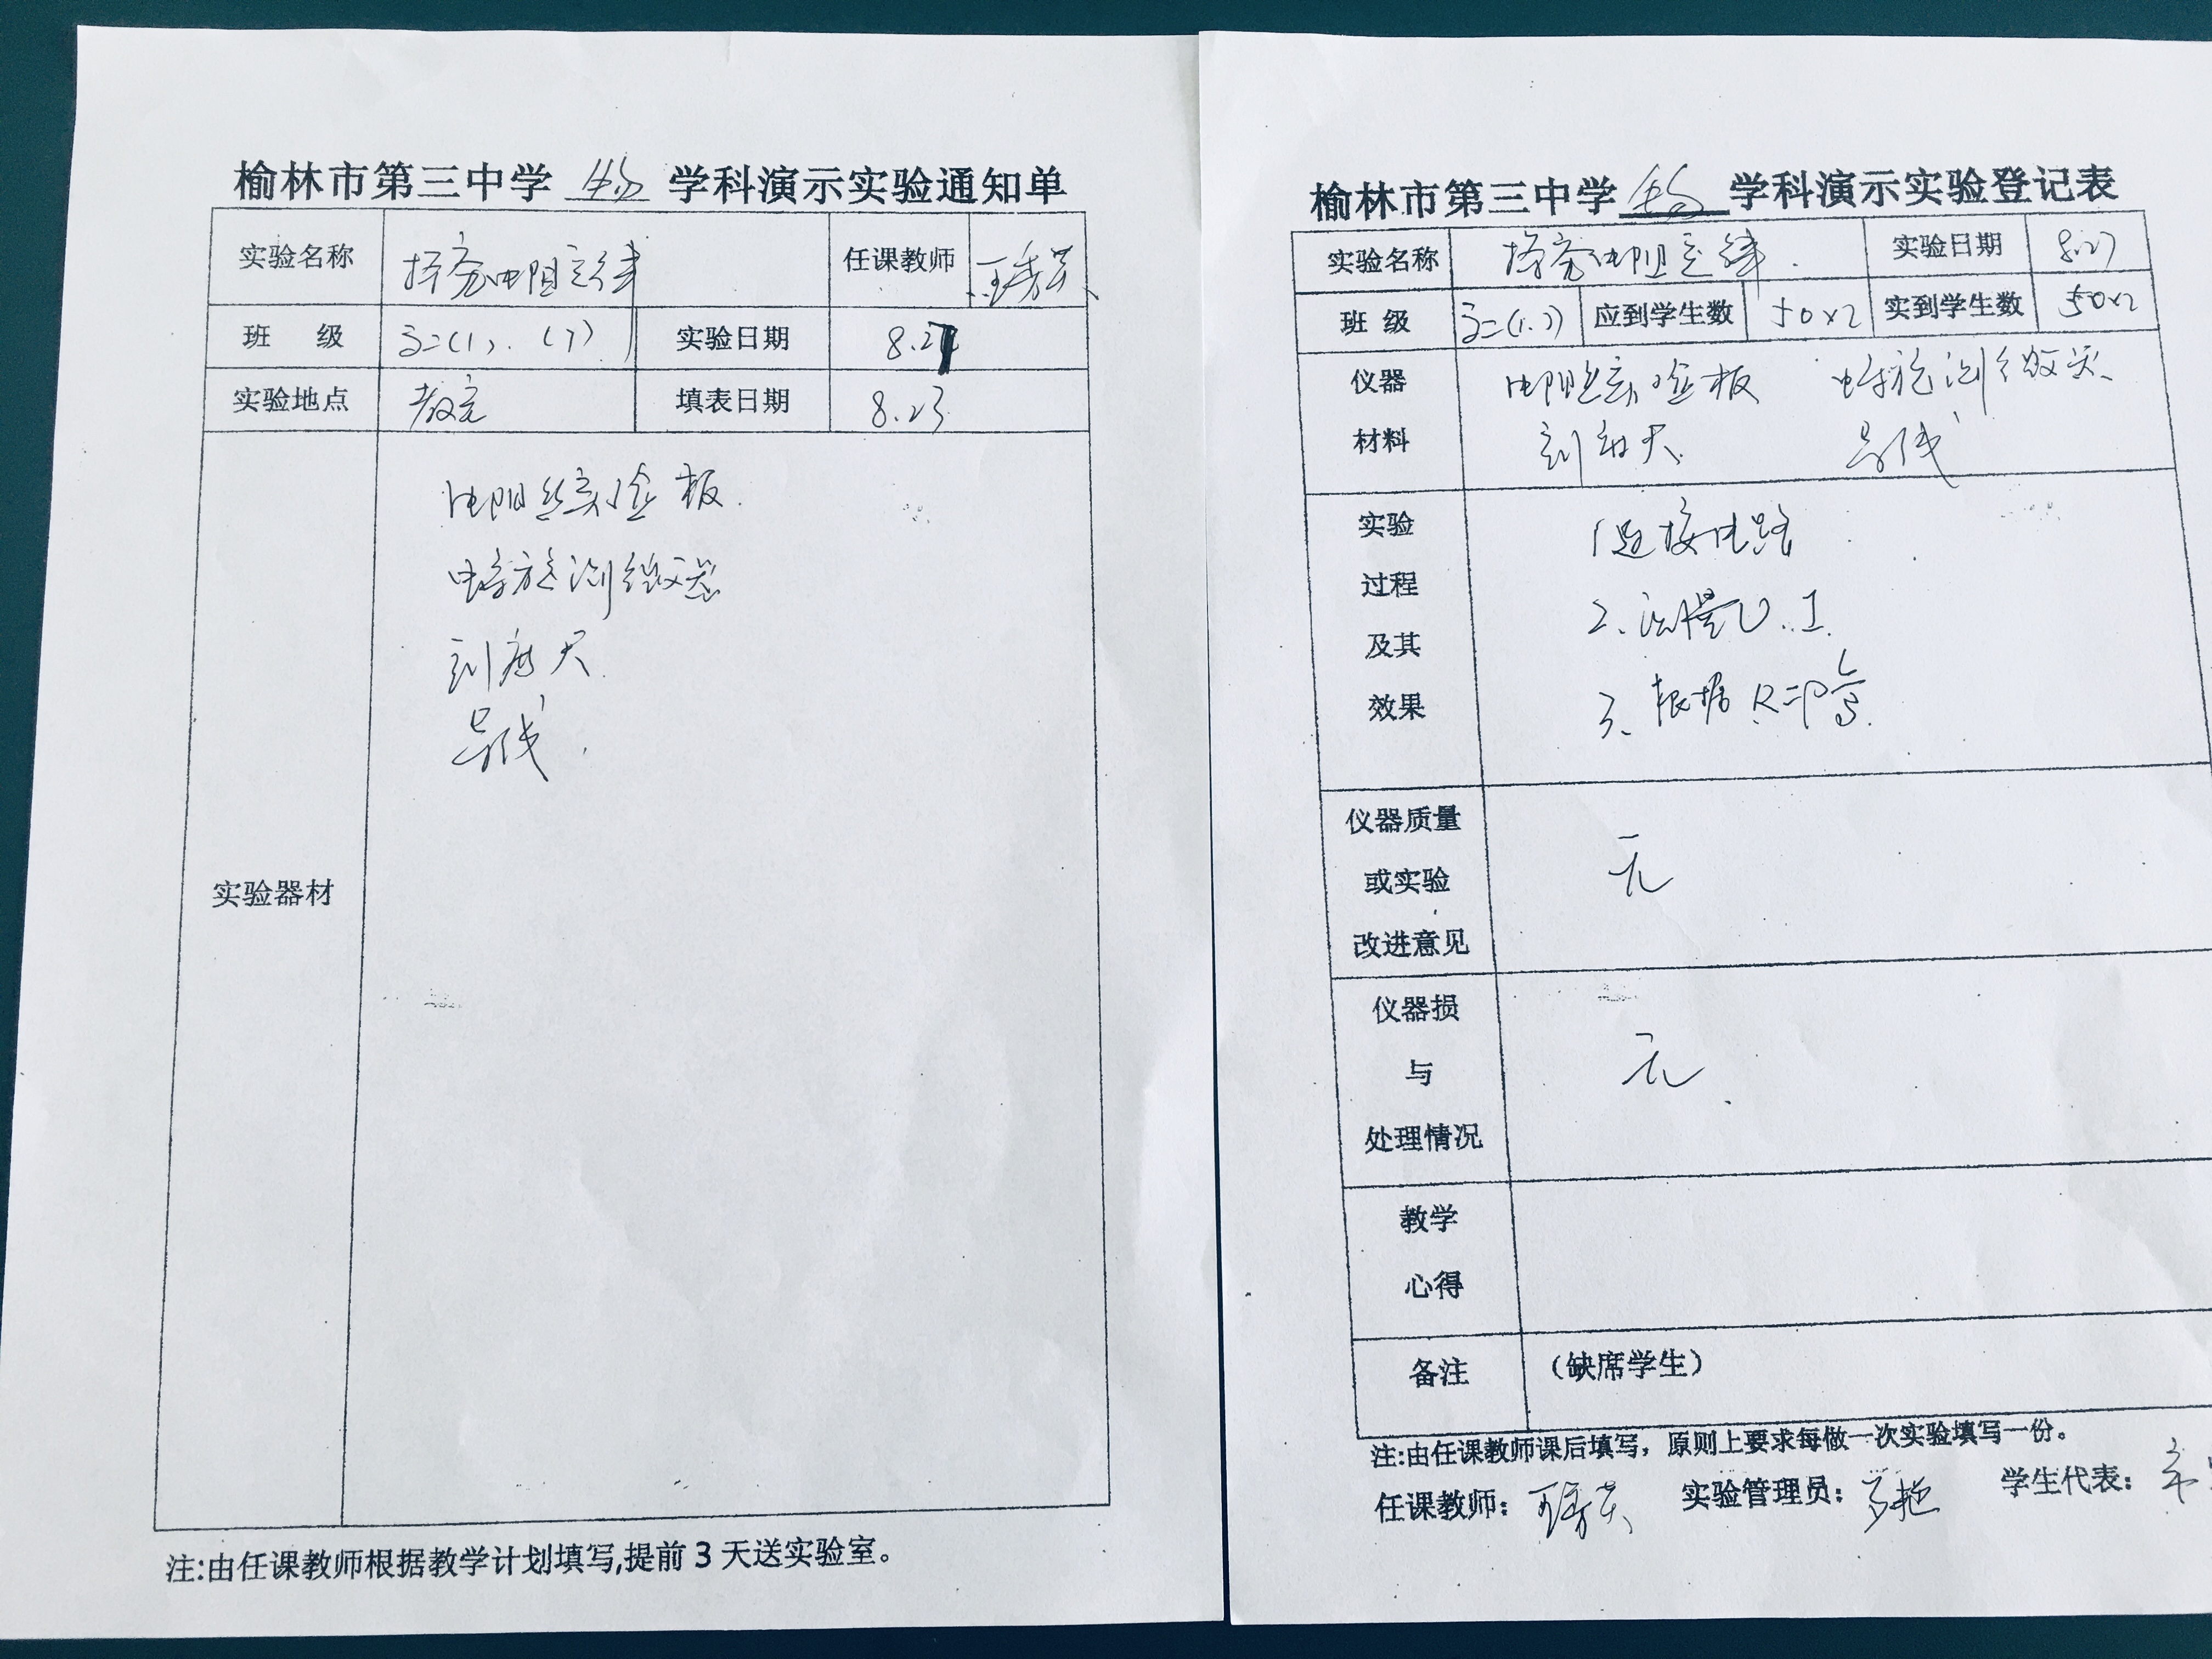 榆林市第三中学 生物 学科演示实验通知单
实验名称 探究电阻定律 任课教师 王秀芸
班 级 高二(1)、(7) 实验日期 8.27
实验地点 教室 填表日期 8.23
实验器材
电阻丝实验板
螺旋测微器
刻度尺
导线
注:由任课教师根据教学计划填写,提前 3 天送实验室。
榆林市第三中学 生物 学科演示实验登记表
实验名称 探究电阻定律. 实验日期 8.27
班 级 高二(1.7) 应到学生数 50×2 实到学生数 50×2
仪器 电阻丝实验板 螺旋测微器
材料 刻度尺 导线
实验 1 连接电路
过程
及其 2、测量U、I
效果 3、根据 R=ρL/S
仪器质量
或实验 无
改进意见
仪器损
与 无
处理情况
教学
心得
备注 (缺席学生)
注:由任课教师课后填写，原则上要求每做一次实验填写一份。
任课教师: 王秀芸 实验管理员: 学生代表: